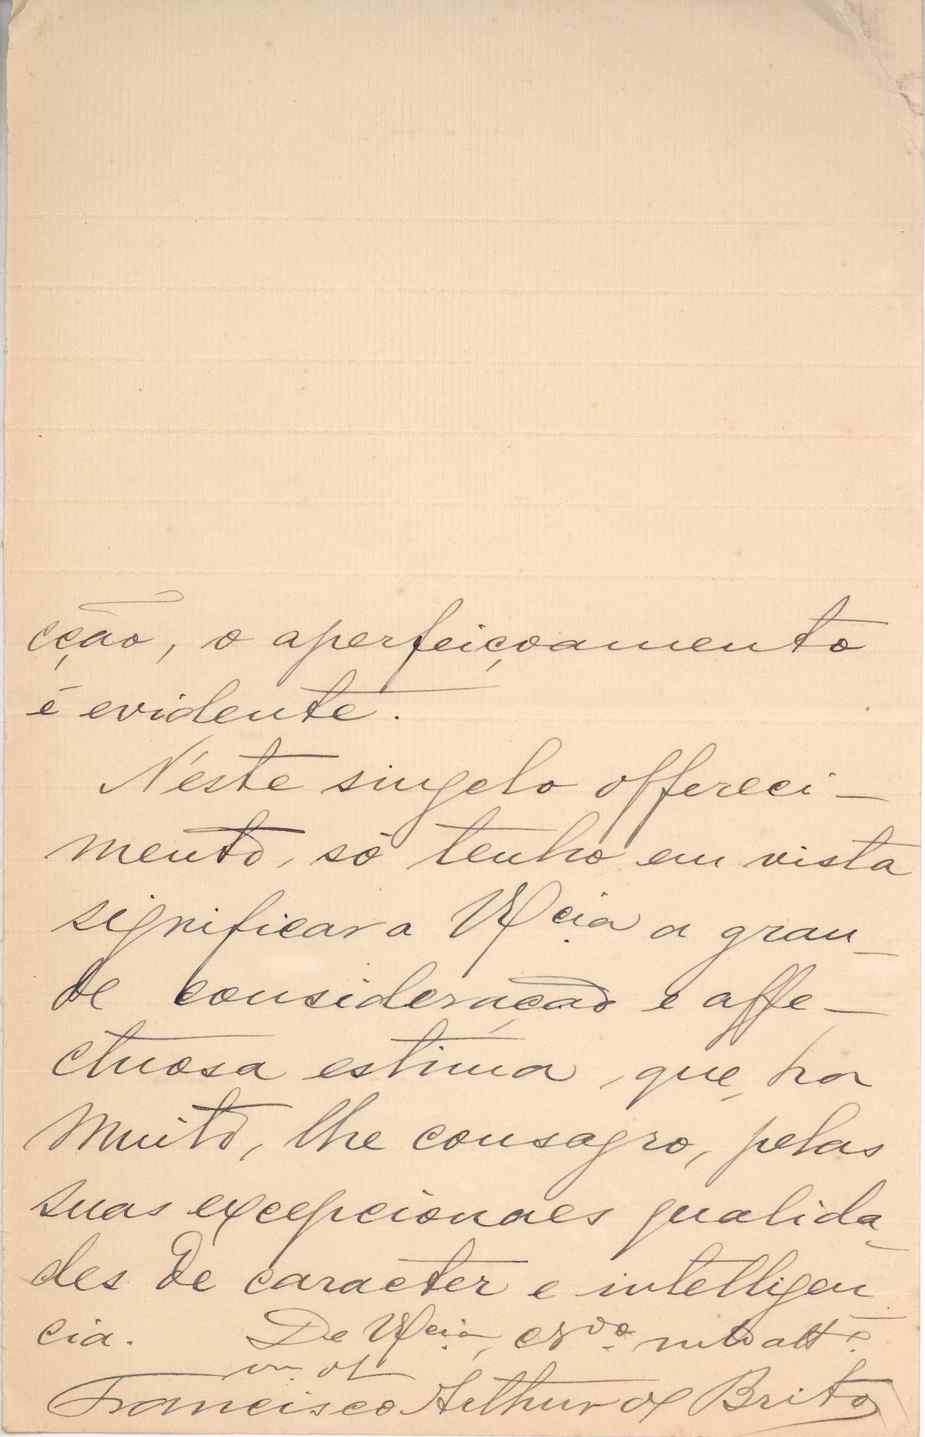 cção, o aperfeiçoamento
é evidente.
N'este singelo offereci-
mento, só tenho em vista
significar a V.Ex.cia a gran-
de consideração e affe-
ctuosa estima, que, ha
muito, lhe consagro, pelas
suas excepcionaes qualida-
des de caracter e intelligen
cia. De V.Ex.cia, cr.do m.to att.º
Francisco Arthur de Brito